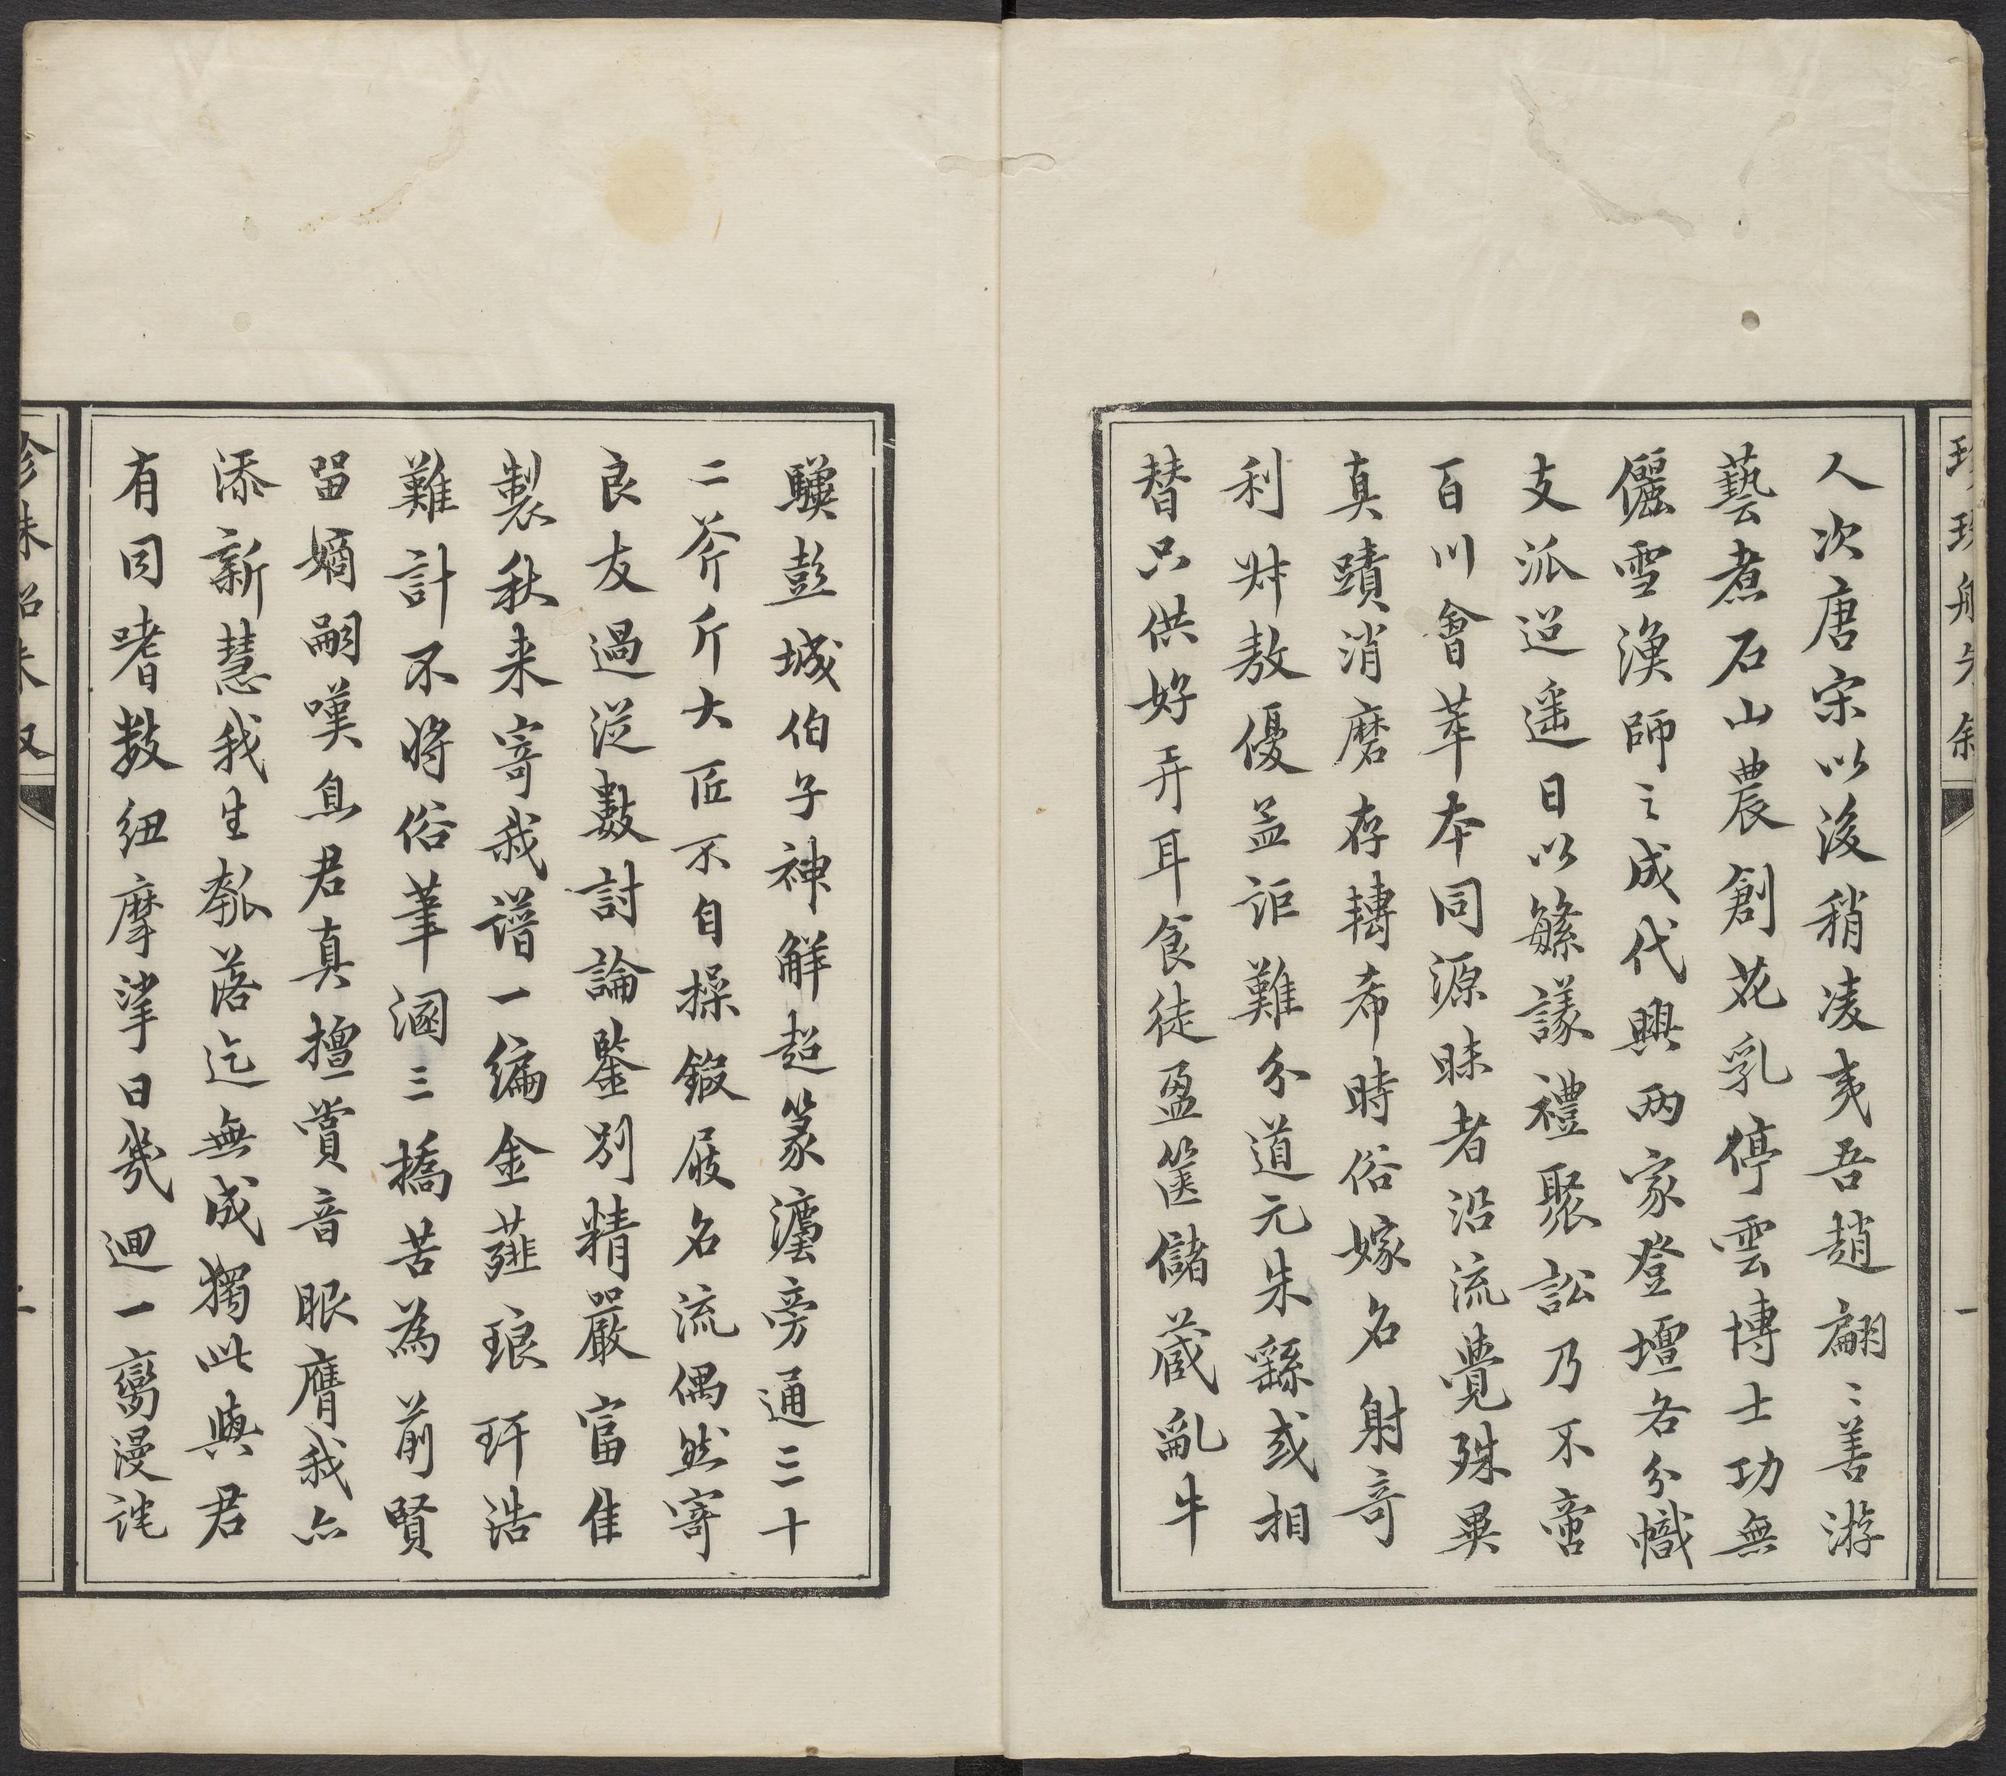 人次唐宋以後稍凌夷吾趙翩〻善游
藝煮石山農創花乳停雲博士功無
儷雪漁師之成代興兩家登壇各分幟
支派迢遥日以緐議禮聚訟乃不啻
百川會萃本同源昧者沿流覺殊異
真蹟消磨存轉希時俗嫁名射奇
利叔敖優孟詎難分道元朱繇或相
替只供好弄耳食徒盈篋儲蔵亂牛
驥彭城伯子神解超篆瀍旁通三十
二斧斤大匠不自操鍜屐名流偶然寄
良友過從數討論鑒別精嚴富隹
製秋来寄我譜一編金薤琅玕浩
難計不將俗筆溷三橋苦為前賢
留嫡嗣嘆息君真擅賞音眼膺我亦
添新慧我生瓠落迄無成獨此與君
有同嗜數紐摩挲日幾迴一臠漫詫
珍珠船朱叙
一